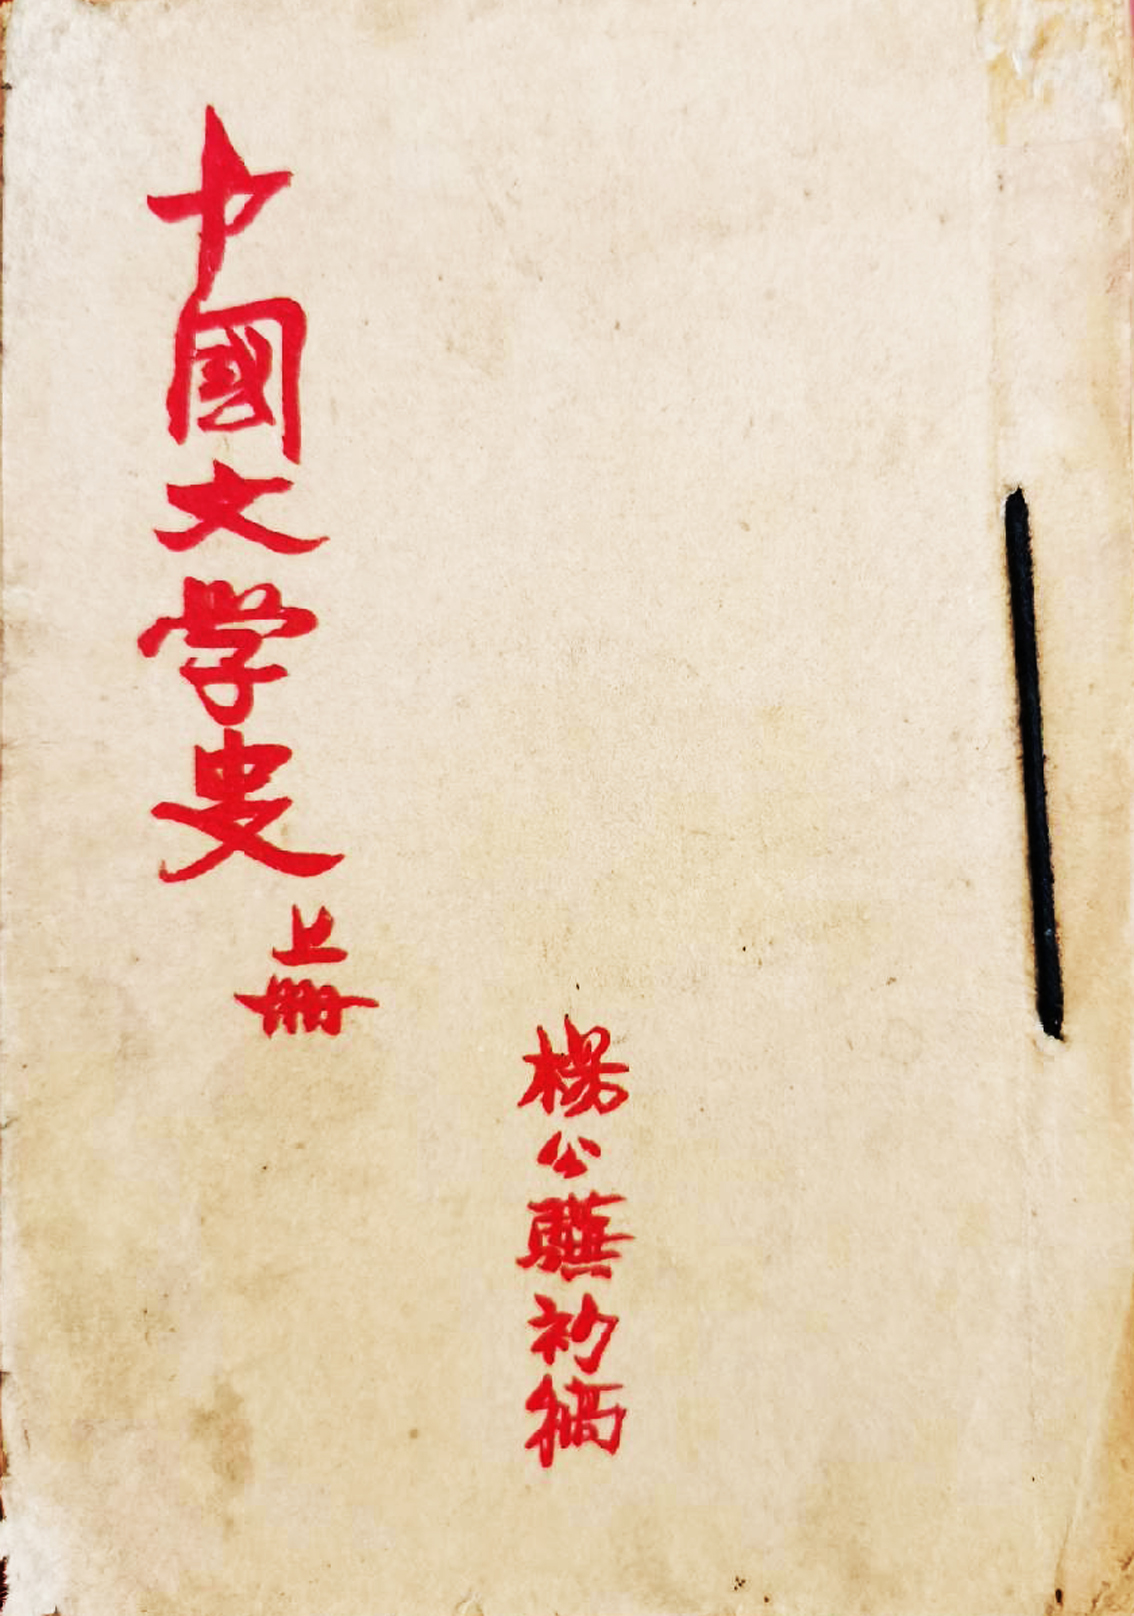 中國文学史
上册
楊公驥初稿